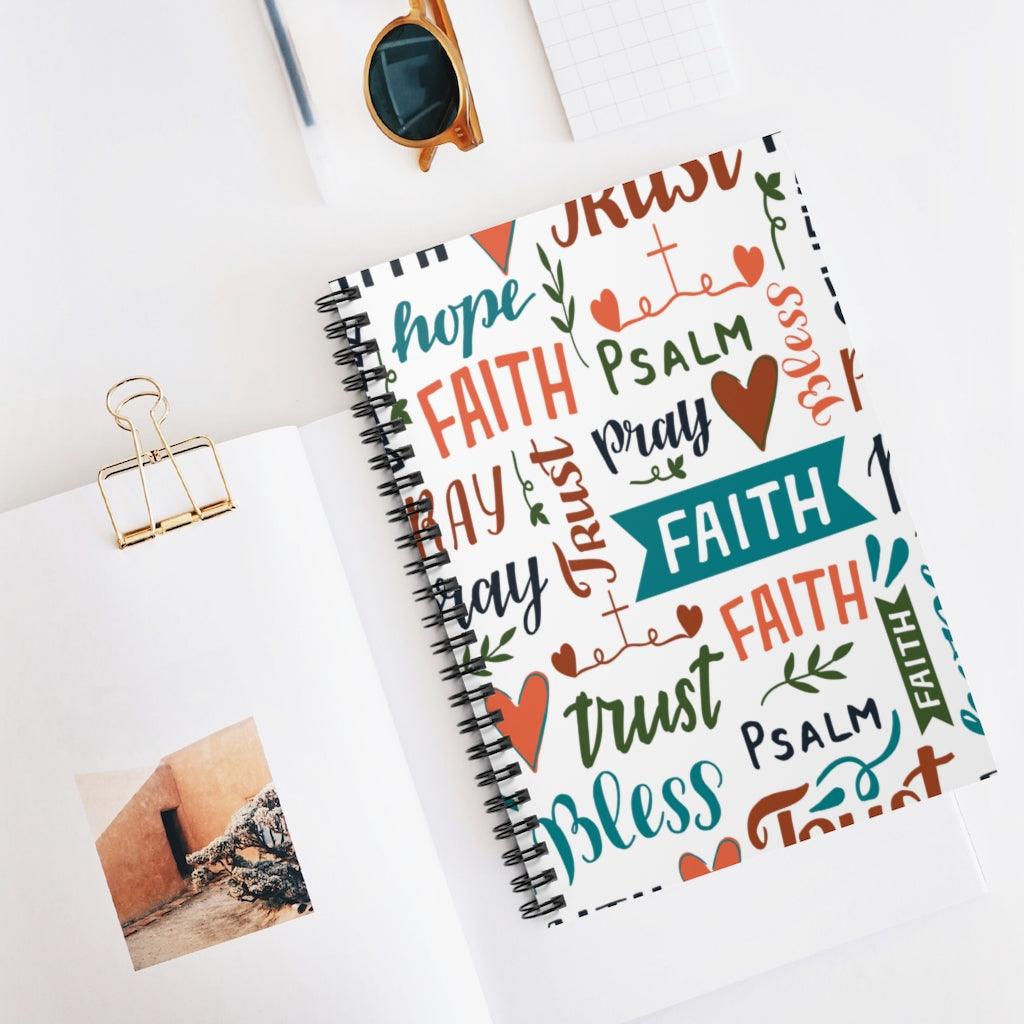 Trust
hope
PSALM
Bless
FAITH
pray
RAY
Trust
FAITH
ray
FAITH
FAITH
trust
PSALM
Bless
Trust